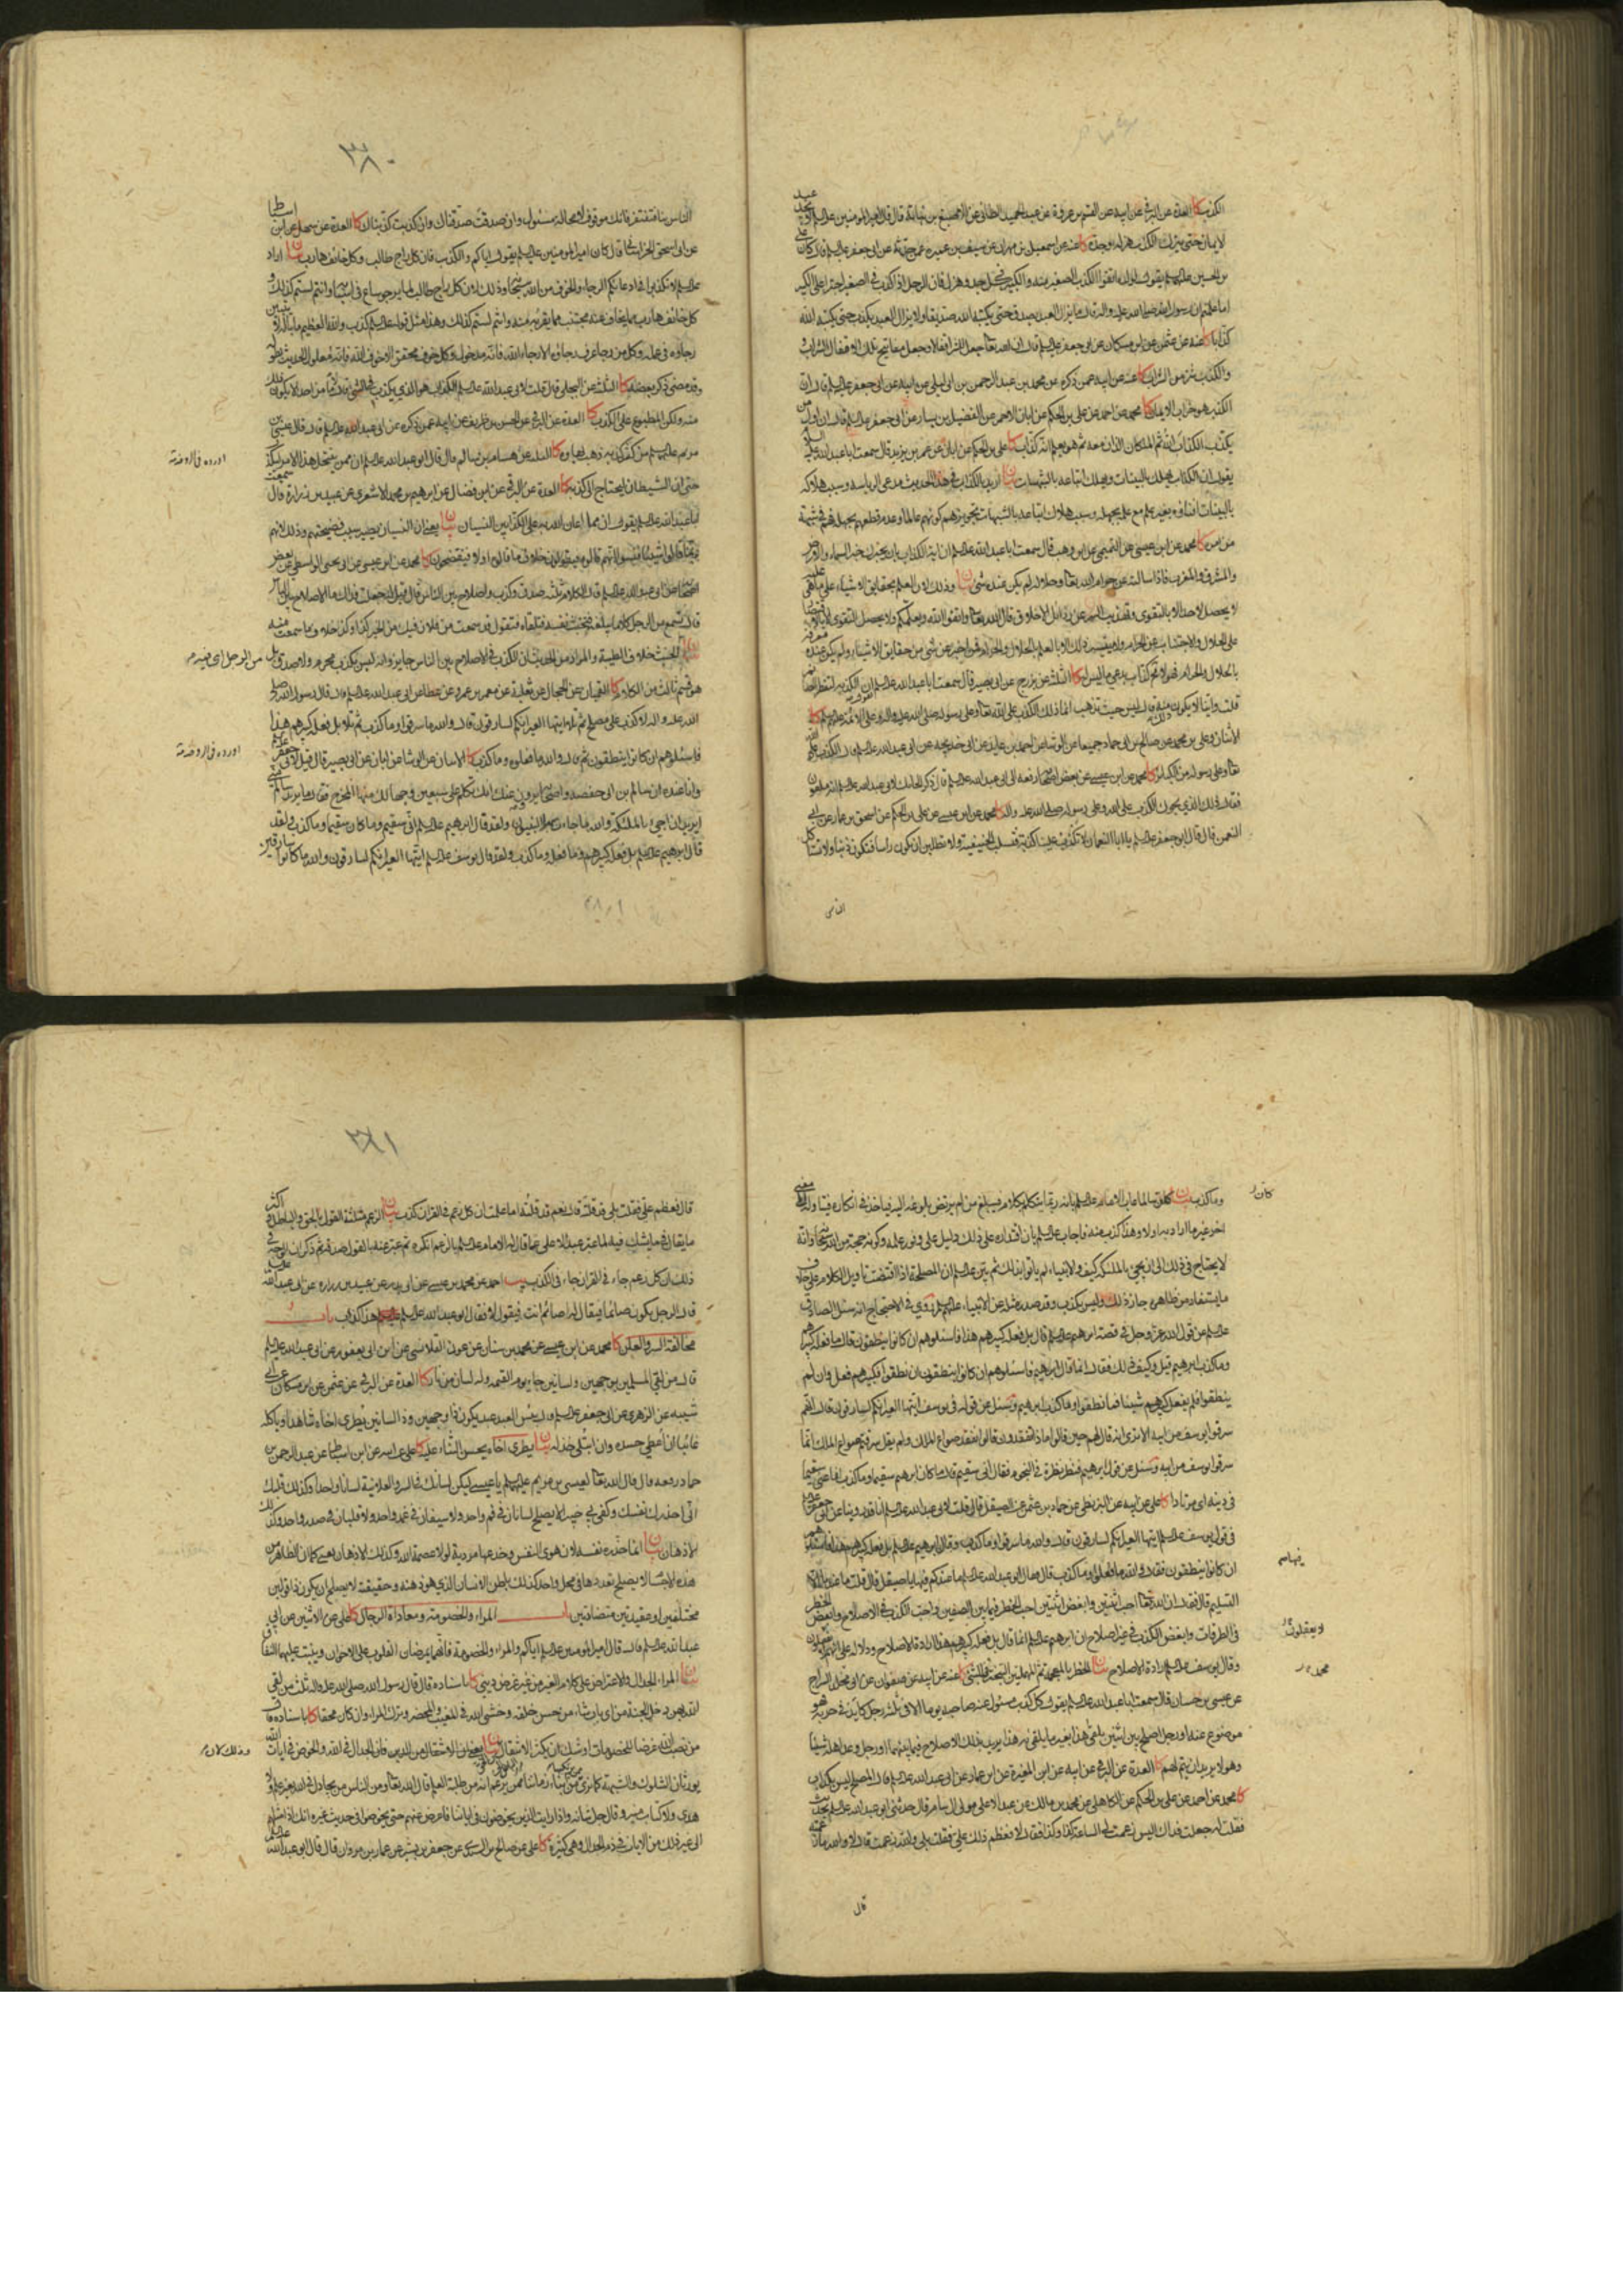 الكذب كا العدة عن البرقي عن ابيه عن القسم بن عروة عن عبد الحميد الطائي عن الاصبغ بن نباتة قال قال امير المؤمنين عليه السلم لا يجد عبد
الايمان حتى يترك الكذب هزله وجده كا عنه عن اسمعيل بن مهران عن سيف بن عميرة عمن حدثه عن ابي جعفر عليه السلم قال كان علي
بن الحسين عليهما السلم يقول لولده اتقوا الكذب الصغير منه والكبير في كل جد وهزل فان الرجل اذا كذب في الصغير اجترا على الكبير
اما علمتم ان رسول الله صلى الله عليه واله قال ما يزال العبد يصدق حتى يكتبه الله صديقا ولا يزال العبد يكذب حتى يكتبه الله
كذابا كا عنه عن عثمن عن ابن مسكان عن ابي جعفر عليه السلم قال ان الله تعالى جعل للشر اقفالا وجعل مفاتيح تلك الاقفال الشراب
والكذب شر من الشراب كا عنه عن ابيه عمن ذكره عن محمد بن عبد الرحمن بن ابي ليلى عن ابيه عن ابي جعفر عليه السلم قال ان
الكذب هو خراب الايمان كا محمد عن احمد عن علي بن الحكم عن ابان الاحمر عن الفضيل بن يسار عن ابي جعفر عليه السلم قال ان اول من
يكذب الكذاب الله ثم الملكان اللذان معه ثم هو يعلم انه كذاب كا علي بن الحكم عن ابان عن عمر بن يزيد قال سمعت ابا عبد الله عليه السلم
يقول ان الكذاب يهلك بالبينات ويهلك اتباعه بالشبهات بيان اريد بالكذاب في هذا الحديث مدعي الرياسة وسبب هلاكه
بالبينات افتاؤه بغير علم مع علمه بجهله وسبب هلاك اتباعه بالشبهات تجويزهم كونه عالما وعدم قطعهم بجهله فهم في شبهة
من امره كا محمد عن ابن عيسى عن التميمي عن ابن وهب قال سمعت ابا عبد الله عليه السلم ان اية الكذاب بان يخبرك خبر السماء والارض
والمشرق والمغرب فاذا سالته عن حرام الله تعالى وحلاله لم يكن عنده شئ بيان وذلك لان العلم بحقايق الاشياء على ما هي عليه
لا يحصل لاحد الا بالتقوى وتهذيب السر عن رذائل الاخلاق قال الله تعالى واتقوا الله ويعلمكم الله ولا يحصل التقوى الا بالاقتصار
على الحلال والاجتناب عن الحرام ولا يتيسر ذلك الا بالعلم بالحلال والحرام فمن اخبر عن شئ من حقايق الاشياء ولم يكن عنده معرفة
بالحلال والحرام فهو لا محالة كذاب يدعي ما ليس له كا الثلثة عن بزرج عن ابي بصير قال سمعت ابا عبد الله عليه السلم ان الكذبة لتفطر الصائم
قلت واينا لا يكون ذلك منه قال ليس حيث تذهب انما ذلك الكذب على الله تعالى وعلى رسوله صلى الله عليه واله وعلى الائمة عليهم السلم كا
الاثنان وعلي بن محمد عن صالح بن ابي حماد جميعا عن الوشا عن احمد بن عايذ عن ابي خديجة عن ابي عبد الله عليه السلم قال الكذب على الله
تعالى وعلى رسوله من الكباير كا محمد عن ابن عيسى عن بعض اصحابه رفعه الى ابي عبد الله عليه السلم قال ذكر الحائك لابي عبد الله عليه السلم انه ملعون
فقال ذلك الذي يحوك الكذب على الله وعلى رسوله صلى الله عليه واله كا محمد عن ابن عيسى عن علي بن الحكم عن اسحق بن عمار عن ابي
النعمن قال قال ابو جعفر عليه السلم يا ابا النعمان لا تكذب علينا كذبة فتسلب الحنيفية ولا تطلبن ان تكون راسا فتكون ذنبا ولا تستاكل
الناس
٣٨٠
الناس بنا فتفتقر فانك موقوف لا محالة مسئول وان صدقت صدقناك وان كذبت كذبناك كا العدة عن سهل عن ابن اسباط
عن ابي اسحق الخراساني قال كان امير المؤمنين عليه السلم يقول اياكم والكذب فان كل راج طالب وكل خائف هارب بيان اراد
عليه السلم لا تكذبوا في ادعائكم الرجاء والخوف من الله سبحانه وذلك لان كل راج طالب لما يرجو ساع في اسبابه وانتم لستم كذلك
كل خائف هارب مما يخاف عنه مجتنب مما يقربه منه وانتم لستم كذلك وهذا مثل قوله عليه السلم كذب والله العظيم ما باله لا يتبين
رجاؤه في عمله وكل من رجا عرف رجاؤه الا رجاء الله فانه مدخول وكل خوف محقق الا خوف الله فانه معلول الحديث بطوله
وقد مضى ذكر بعضه كا الثلثة عن البجلي قال قلت لابي عبد الله عليه السلم الكذاب هو الذي يكذب في الشئ قال لا ما من احد الا يكون ذلك
منه ولكن المطبوع على الكذب كا العدة عن البرقي عن الحسن بن ظريف عن ابيه عمن ذكره عن ابي عبد الله عليه السلم قال قال عيسى بن
مريم عليه السلم من كثر كذبه ذهب بهاؤه كا الثلثة عن هشام بن سالم قال قال ابو عبد الله عليه السلم ان ممن ينتحل هذا الامر ليكذب
اورده في الروضة
حتى ان الشيطان ليحتاج الى كذبه كا العدة عن البرقي عن ابن فضال عن ابرهيم بن محمد الاشعري عن عبيد بن زرارة قال سمعت
ابا عبد الله عليه السلم يقول ان مما اعان الله به على الكذابين النسيان بيان يعني ان النسيان يصير سبب فضيحتهم وذلك لانهم
ربما قالوا شيئا فنسوا انهم قالوه فيقولون خلاف ما قالوه اولا فيفتضحون كا محمد عن ابن عيسى عن ابي يحيى الواسطي عن بعض
اصحابنا عن ابي عبد الله عليه السلم قال الكلام ثلثة صدق وكذب واصلاح بين الناس قال قيل له جعلت فداك ما الاصلاح بين الناس
قال تسمع من الرجل كلاما يبلغه فتخبث نفسه فتلقاه فتقول قد سمعت من فلان فيك من الخير كذا وكذا خلاف ما سمعت منه
بيان الخبث خلاف الطيبة والمراد من الحديث ان الكذب في الاصلاح بين الناس جايز وانه ليس بكذب محرم ولا صدق بل
من الرجل اي فيه م
هو قسم ثالث من الكلام كا القميان عن الحجال عن ثعلبة عن معمر بن عمرو عن عطا عن ابي عبد الله عليه السلم قال قال رسول الله صلى
الله عليه واله لا كذب على مصلح ثم تلا ايتها العير انكم لسارقون قال والله ما سرقوا وما كذب ثم تلا بل فعله كبيرهم هذا
فاسئلوهم ان كانوا ينطقون ثم قال والله ما فعلوه وما كذب كا الاثنان عن الوشا عن ابان عن ابي بصير قال قيل لابي جعفر عليه السلم
اورده في الروضة
وانا عنده ان سالم بن ابي حفصة واصحابه يروون عنك انك تكلم على سبعين وجها لك منها المخرج فقال ما يريد سالم مني
ايريد ان اجئ بالملئكة والله ما جاءت بهذا النبيون ولقد قال ابرهيم عليه السلم اني سقيم وما كان سقيما وما كذب ولقد
قال ابرهيم عليه السلم بل فعله كبيرهم وما فعله وما كذب ولقد قال يوسف عليه السلم ايتها العير انكم لسارقون والله ما كانوا سارقين
وما كذب بيان كان سالما عاب الامام عليه السلم بانه ربما يتكلم بكلام فيبلغ من لم يرتض بلوغه اليه فياخذ في انكاره
كان
اخر غير ما اراد به اولا وهذا كذب منه فاجاب عليه السلم بان اقتداره على ذلك دليل على وفور علمه وكونه حجة من الله سبحانه وانه
لا يحتاج في ذلك الى ان يجئ بالملئكة كيف والانبياء لم ياتوا بذلك ثم بين عليه السلم ان المصلحة اذا اقتضت تاويل الكلام على خلاف
ما يستفاد من ظاهره جاز ذلك وليس بكذب وقد صدر مثل عن الانبياء عليهم السلم وروي في الاحتجاج انه سئل الصادق
عليه السلم عن قول الله عز وجل في قصة ابرهيم عليه السلم قال بل فعله كبيرهم هذا فاسئلوهم ان كانوا ينطقون قال ما فعله كبيرهم
وما كذب ابرهيم قيل وكيف ذلك فقال انما قال ابرهيم فاسئلوهم ان كانوا ينطقون ان نطقوا فكبيرهم فعل وان لم
ينطقوا فلم يفعل كبيرهم شيئا فما نطقوا وما كذب ابرهيم وسئل عن قوله في يوسف ايتها العير انكم لسارقون قال انهم
سرقوا يوسف من ابيه الا ترى انه قال لهم حين قالوا ماذا تفقدون قالوا نفقد صواع الملك ولم يقل سرقتم صواع الملك انما
سرقوا يوسف من ابيه وسئل عن قول ابرهيم فنظر نظرة في النجوم فقال اني سقيم قال ما كان ابرهيم سقيما وما كذب انما عنى سقيما
في دينه اي مرتادا كا علي عن ابيه عن البزنطي عن حماد بن عثمن عن الصيقل قال قلت لابي عبد الله عليه السلم انا قد روينا عن ابي جعفر عليه السلم
في قول يوسف عليه السلم ايتها العير انكم لسارقون قال والله ما سرقوا وما كذب وقال ابرهيم عليه السلم بل فعله كبيرهم هذا فاسئلوهم
ان كانوا ينطقون فقال والله ما فعلوا وما كذب قال فقال ابو عبد الله عليه السلم ما عندكم فيها يا صيقل قال قلت ما عندنا الا
فيها م
التسليم قال فقال ان الله تعالى احب اثنتين وابغض اثنتين احب الخطر فيما بين الصفين واحب الكذب في الاصلاح وابغض الخطر
في الطرقات وابغض الكذب في غير اصلاح ان ابرهيم عليه السلم انما قال بل فعله كبيرهم هذا ارادة الاصلاح ودلالة على انهم لا يفعلون
لا يعقلون
وقال يوسف عليه السلم ارادة الاصلاح بيان الخطر بالمعجمة ثم المهملتين التبختر في المشي كا عنه عن ابيه عن صفوان عن ابي مخلد السراج
عن عيسى بن حسان قال سمعت ابا عبد الله عليه السلم يقول كل كذب مسئول عنه صاحبه يوما الا في ثلثة رجل كايد في حربه فهو
موضوع عنه او رجل اصلح بين اثنين يلقى هذا بغير ما يلقى به هذا يريد بذلك الاصلاح فيما بينهما او رجل وعد اهله شيئا
وهو لا يريد ان يتم لهم كا العدة عن البرقي عن ابيه عن ابن المغيرة عن ابن عمار عن ابي عبد الله عليه السلم قال المصلح ليس بكذاب
كا محمد عن احمد عن علي بن الحكم عن الكاهلي عن محمد بن مالك عن عبد الاعلى مولى ال سام قال حدثني ابو عبد الله عليه السلم بحديث
فقلت له جعلت فداك اليس زعمت لي الساعة كذا وكذا فقال لا فعظم ذلك علي فقلت بلى والله زعمت قال لا والله ما زعمته
قال
٣٨١
قال فعظم علي فقلت بلى قد قلته قال نعم قد قلته اما علمت ان كل زعم في القران كذب بيان الزعم مثلثة القول بالحق والباطل واكثر
ما يقال فيما يشك فيه لما عبر عبد الاعلى عما قال له الامام عليه السلم بالزعم انكره ثم عبر عنه بالقول صدقه ثم ذكر ان الوجه في
ذلك ان كل زعم جاء في القران جاء في الكذب يب احمد عن محمد بن عيسى عن ابي بدر عن عبيد بن زرارة عن ابي عبد الله عليه السلم
قال الرجل يكون صائما فيقال له اصائم انت فيقول لا فقال ابو عبد الله عليه السلم هذا كذاب باب
مخالفة السر والعلن كا محمد عن ابن عيسى عن محمد بن سنان عن عون القلانسي عن ابن ابي يعفور عن ابي عبد الله عليه السلم
قال من لقي المسلمين بوجهين ولسانين جاء يوم القيمة وله لسان من نار كا العدة عن البرقي عن عثمن عن ابن مسكان عن ابي
شيبة عن الزهري عن ابي جعفر عليه السلم قال بئس العبد عبد يكون ذا وجهين وذا لسانين يطري اخاه شاهدا وياكله
غائبا ان اعطي حسده وان ابتلي خذله بيان يطري اخاه يحسن الثناء عليه كا علي عن ابيه عن ابن اسباط عن عبد الرحمن بن
حماد رفعه قال قال الله تعالى لعيسى بن مريم عليه السلم يا عيسى ليكن لسانك في السر والعلانية لسانا واحدا وكذلك قلبك
اني احذرك نفسك وكفى بي خبيرا لا يصلح لسانان في فم واحد ولا سيفان في غمد واحد ولا قلبان في صدر واحد وكذلك
الاذهان بيان انما حذره نفسه لان هوى النفس وخدعها مردية لولا عصمة الله وكذلك الاذهان يعني كما ان الظاهر من
هذه الاجسام لا يصلح تعددها في محل واحد كذلك باطن الانسان الذي هو ذهنه وحقيقته لا يصلح ان يكون ذا قولين
مختلفين او عقيدتين متضادتين باب المراء والخصومة ومعاداة الرجال كا علي عن الاثنين عن ابي
عبد الله عليه السلم قال قال امير المؤمنين عليه السلم اياكم والمراء والخصومة فانهما يمرضان القلوب على الاخوان وينبت عليهما النفاق
بيان المراء الجدال والاعتراض على كلام الغير من غير غرض ديني كا باسناده قال قال رسول الله صلى الله عليه واله ثلث من لقي
الله بهن دخل الجنة من اي باب شاء من حسن خلقه وخشي الله في المغيب والمحضر وترك المراء وان كان محقا كا باسناده قال
من نصب الله غرضا للخصومات اوشك ان يكثر الانتقال بيان يعني الانتقال من الدين فان الجدال في الله والخوض في ايات الله
وذلك لان م
يورثان الشكوك والشبهة كما نرى من ابناء زماننا ممن يزعم انه من طلبة العلم قال الله تعالى ومن الناس من يجادل في الله بغير علم ولا
هدى ولا كتاب منير وقال جل شانه واذا رايت الذين يخوضون في اياتنا فاعرض عنهم حتى يخوضوا في حديث غيره انك اذا مثلهم
الى غير ذلك من الايات في ذم الجدال وهي كثيرة كا علي عن صالح بن السندي عن جعفر بن بشير عن عمار بن مروان قال قال ابو عبد الله عليه السلم